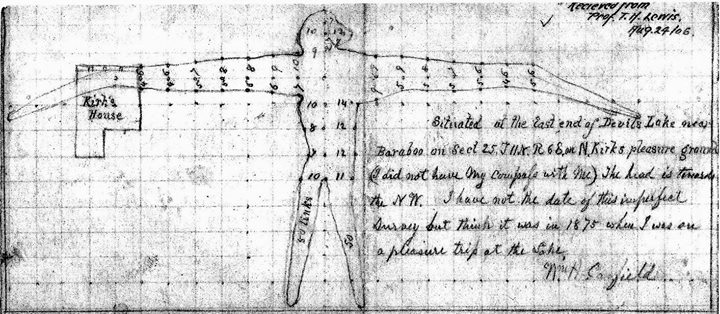 Recieved from
Prof. T. H. Lewis,
Aug. 24/06
Kirk's
House
Situated at the East end of Devils Lake near
Baraboo on Sect 25, T 11 N. R 6 E, on N. Kirks pleasure ground
(I did not have my compass with me) The head is towards
the N.W. I have not the date of this imperfect
Survey but think it was in 1875 when I was on
a pleasure trip at the Lake.
Wm H. Canfield
50 links
50
10 12
9
10 14
8 12
7 12
10 11